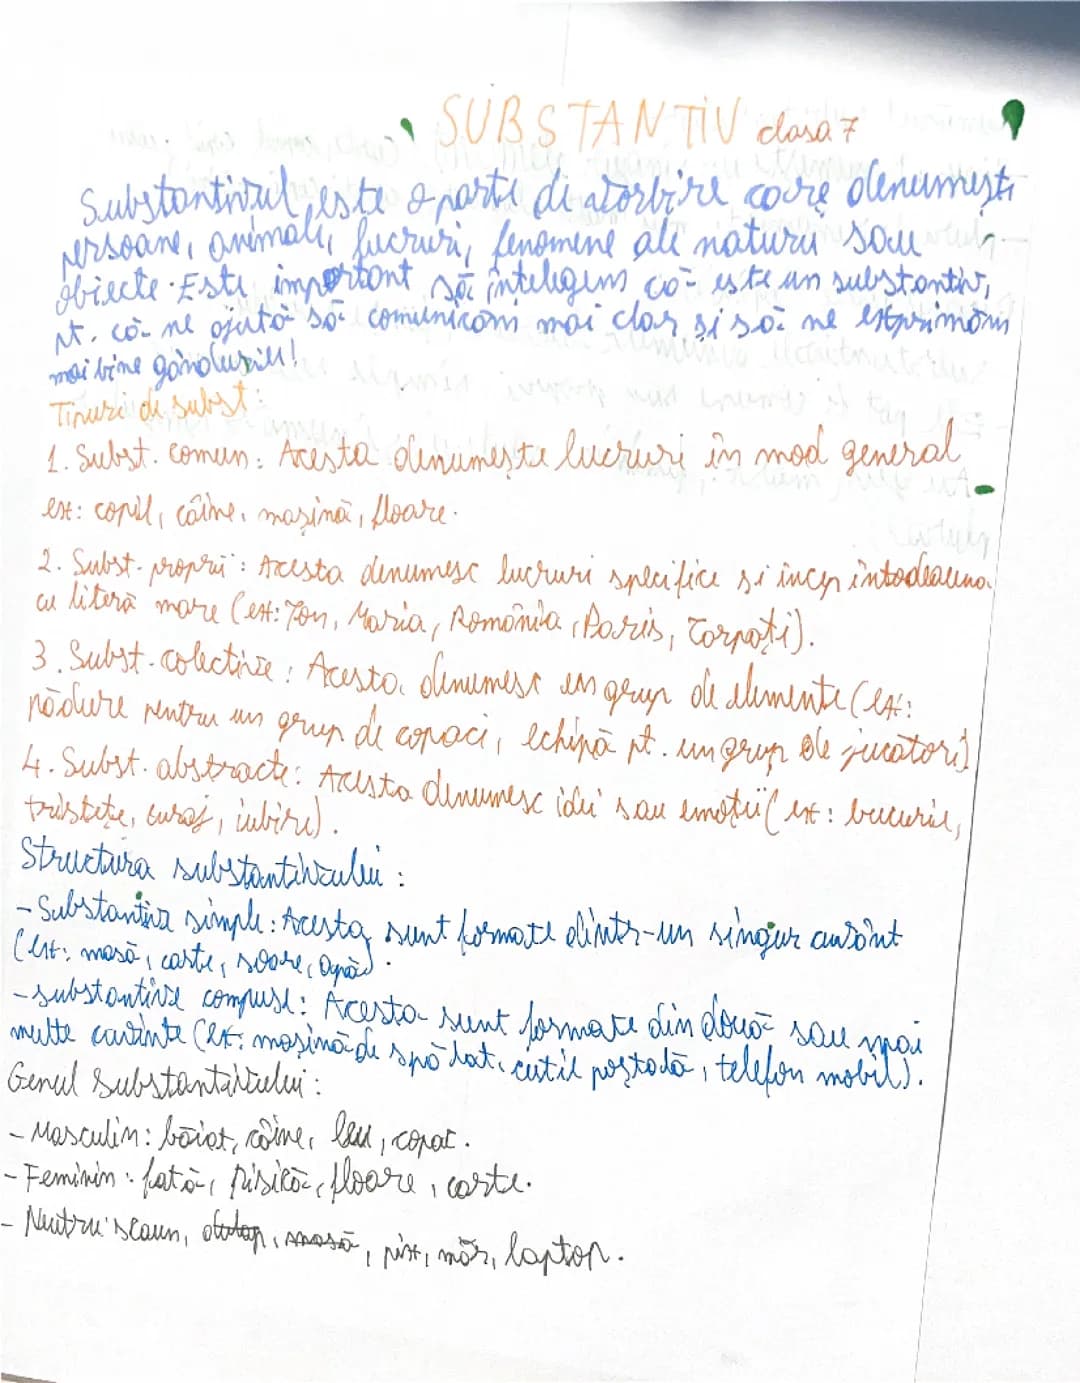 SUBSTANTIV clasa 7
Substantivul este o parte de vorbire care denumește
persoane, animale, lucruri, fenomene ale naturii sau
obiecte. Este important să înțelegem că este un substantiv,
pt. că ne ajută să comunicăm mai clar și să ne exprimăm
mai bine gândurile!
Tipuri de subst:
1. Subst. comun: Acesta denumește lucruri în mod general
ex: copil, câine, mașină, floare.
2. Subst. proprii: Acesta denumesc lucruri specifice și încep întodeauna
cu literă mare (ex: Ion, Maria, România, Paris, Carpați).
3. Subst. colective: Acesta denumesc un grup de elemente (ex:
pădure pentru un grup de copaci, echipă pt. un grup de jucatori)
4. Subst. abstracte: Acesta denumesc idei sau emoții (ex: bucurie,
tristețe, curaj, iubire).
Structura substantivului:
- Substantive simple: Acesta sunt formate dintr-un singur cuvânt
(ex: masă, carte, soare, apă).
- substantive compuse: Acesta sunt formate din două sau mai
multe cuvinte (ex: mașină de spălat, cutie poștală, telefon mobil).
Genul substantivului:
- Masculin: băiat, câine, leu, copac.
- Feminin: fată, pisică, floare, carte.
- Neutru: scaun, masă, pix, măr, laptop.